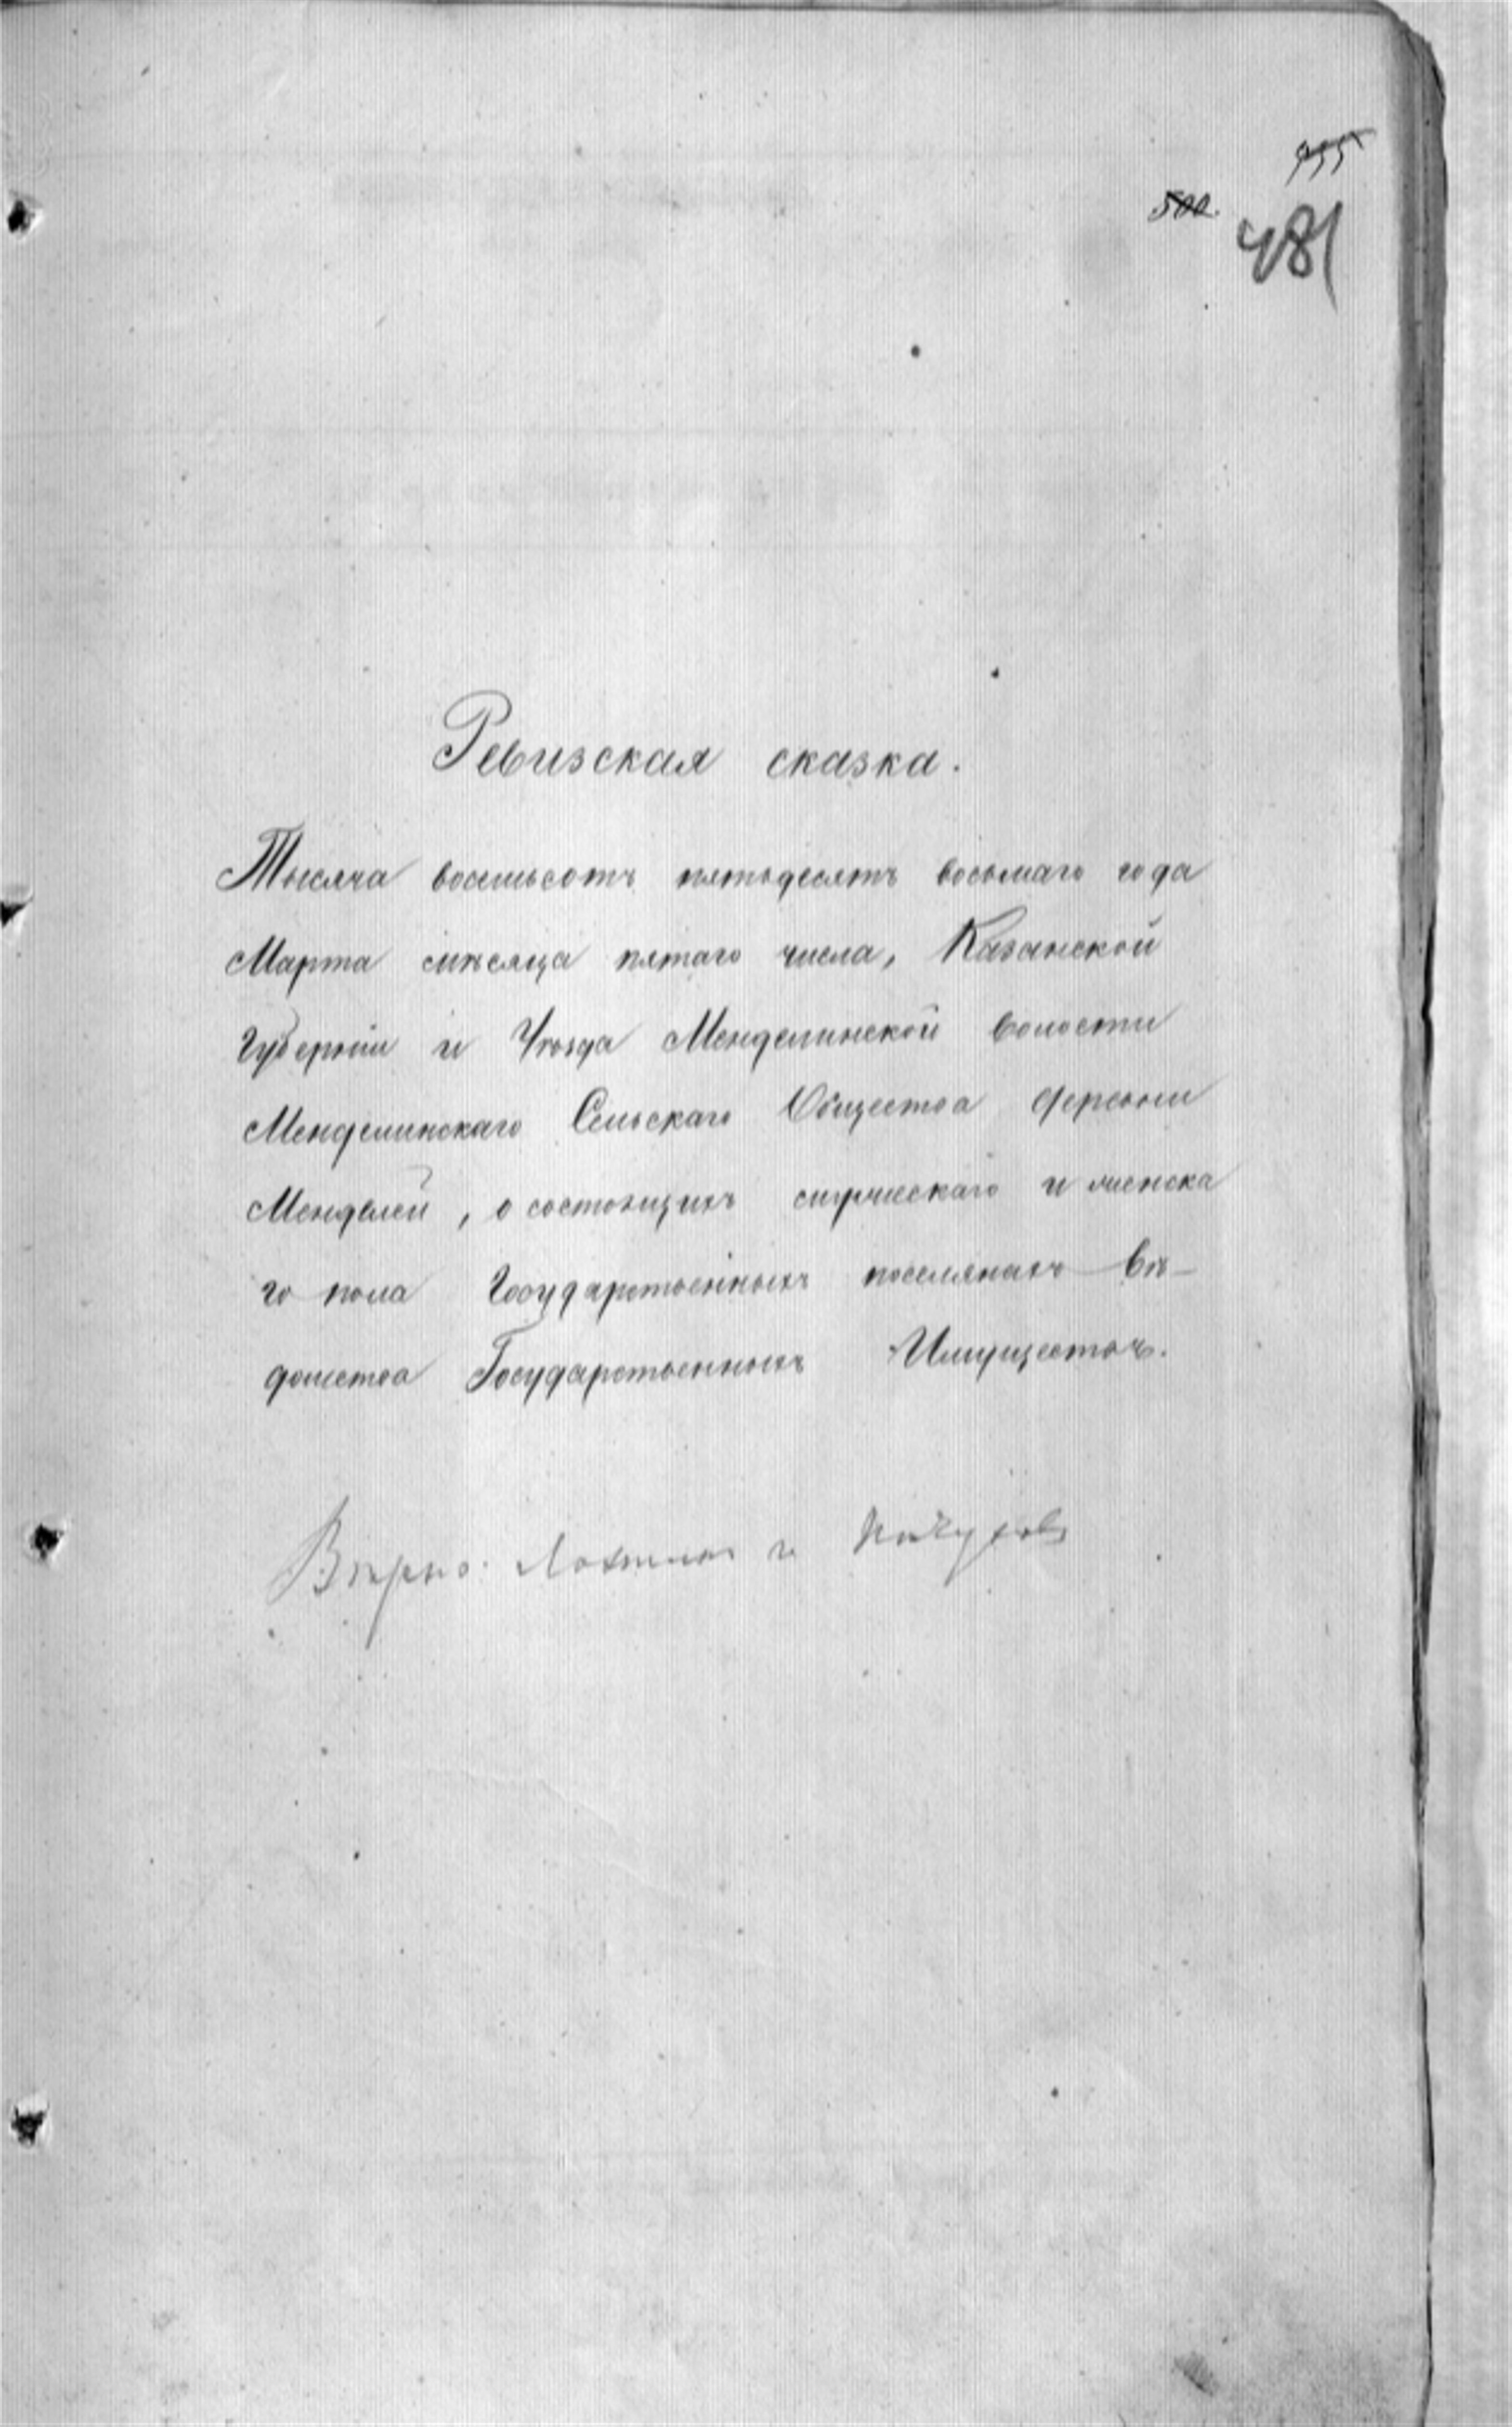 500.
481
Ревизская сказка.
Тысяча восемьсотъ пятьдесятъ восьмаго года
Марта мѣсяца пятаго числа, Казанской
Губерніи и Уѣзда Менделинской волости
Менделинскаго Сельскаго Общества деревни
Менделей, о состоящихъ мужескаго и женска
го пола Государственныхъ поселянахъ вѣ-
домства Государственныхъ Имуществъ.
Вѣрно: